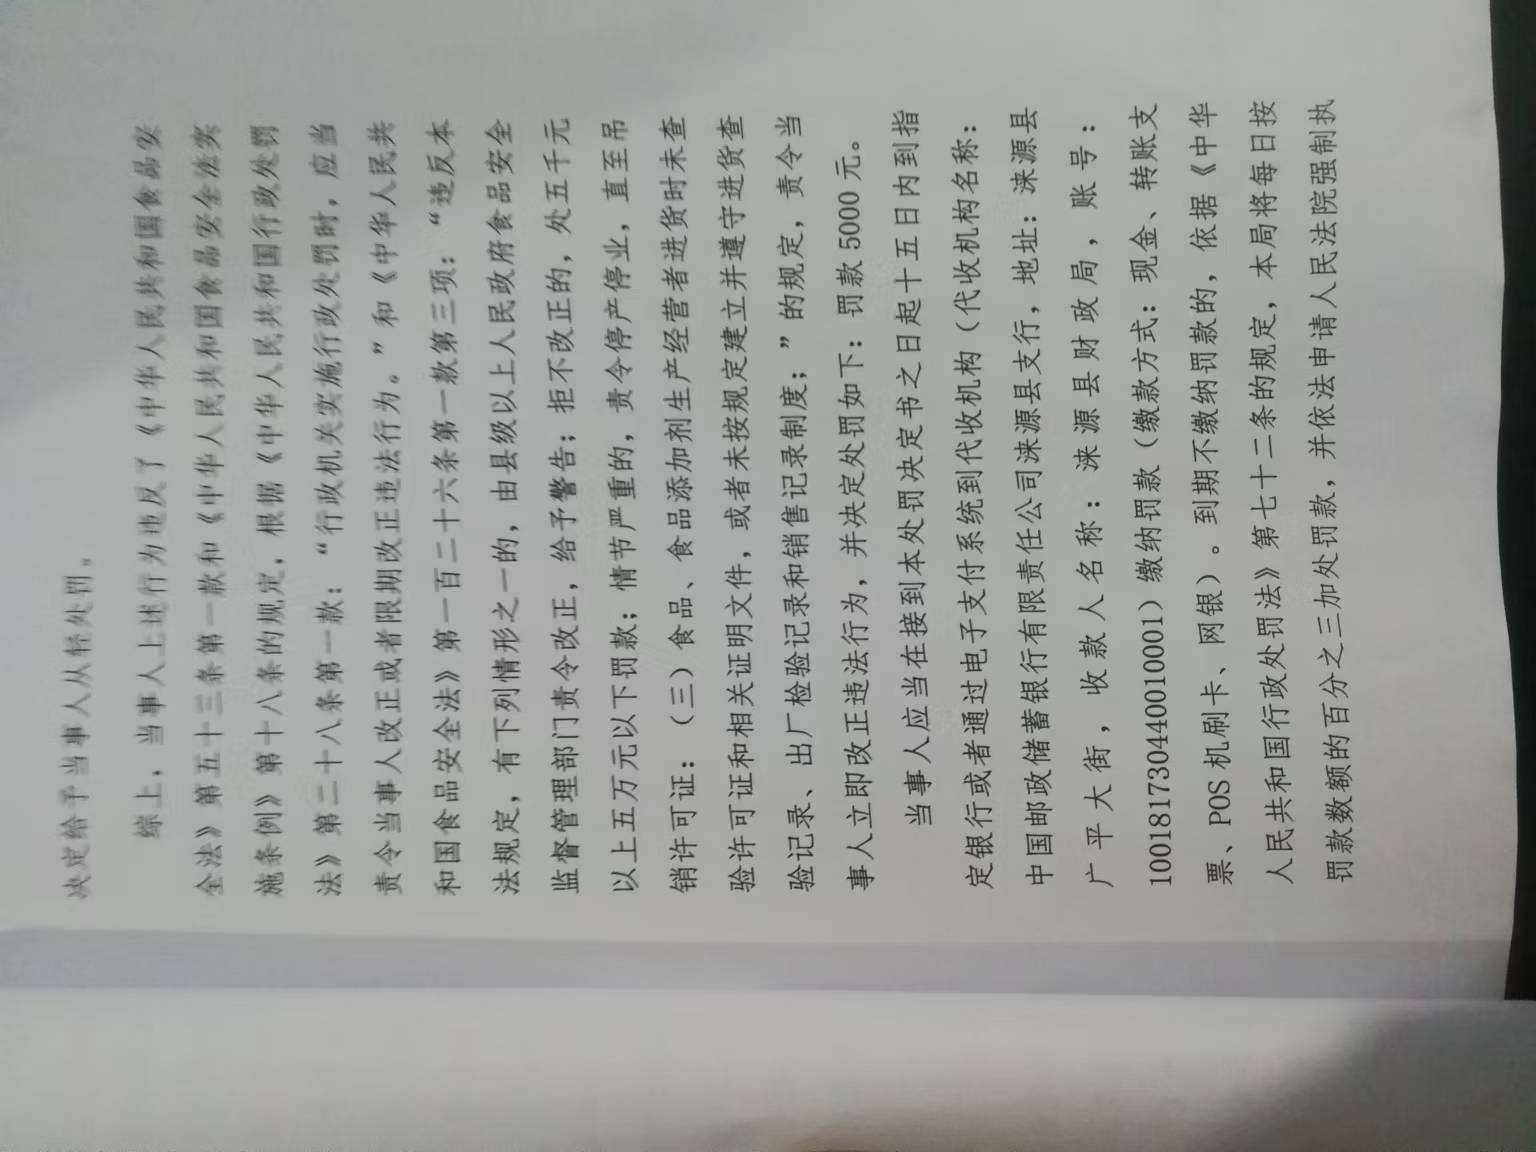 决定给予当事人从轻处罚。
综上，当事人上述行为违反了《中华人民共和国食品安
全法》第五十三条第一款和《中华人民共和国食品安全法实
施条例》第十八条的规定，根据《中华人民共和国行政处罚
法》第二十八条第一款：“行政机关实施行政处罚时，应当
责令当事人改正或者限期改正违法行为。”和《中华人民共
和国食品安全法》第一百二十六条第一款第三项：“违反本
法规定，有下列情形之一的，由县级以上人民政府食品安全
监督管理部门责令改正，给予警告；拒不改正的，处五千元
以上五万元以下罚款；情节严重的，责令停产停业，直至吊
销许可证：（三）食品、食品添加剂生产经营者进货时未查
验许可证和相关证明文件，或者未按规定建立并遵守进货查
验记录、出厂检验记录和销售记录制度；”的规定，责令当
事人立即改正违法行为，并决定处罚如下：罚款 5000 元。
当事人应当在接到本处罚决定书之日起十五日内到指
定银行或者通过电子支付系统到代收机构（代收机构名称：
中国邮政储蓄银行有限责任公司涞源县支行，地址：涞源县
广平大街，收款人名称：涞源县财政局，账号：
100181730440010001）缴纳罚款（缴款方式：现金、转账支
票、POS 机刷卡、网银）。到期不缴纳罚款的，依据《中华
人民共和国行政处罚法》第七十二条的规定，本局将每日按
罚款数额的百分之三加处罚款，并依法申请人民法院强制执